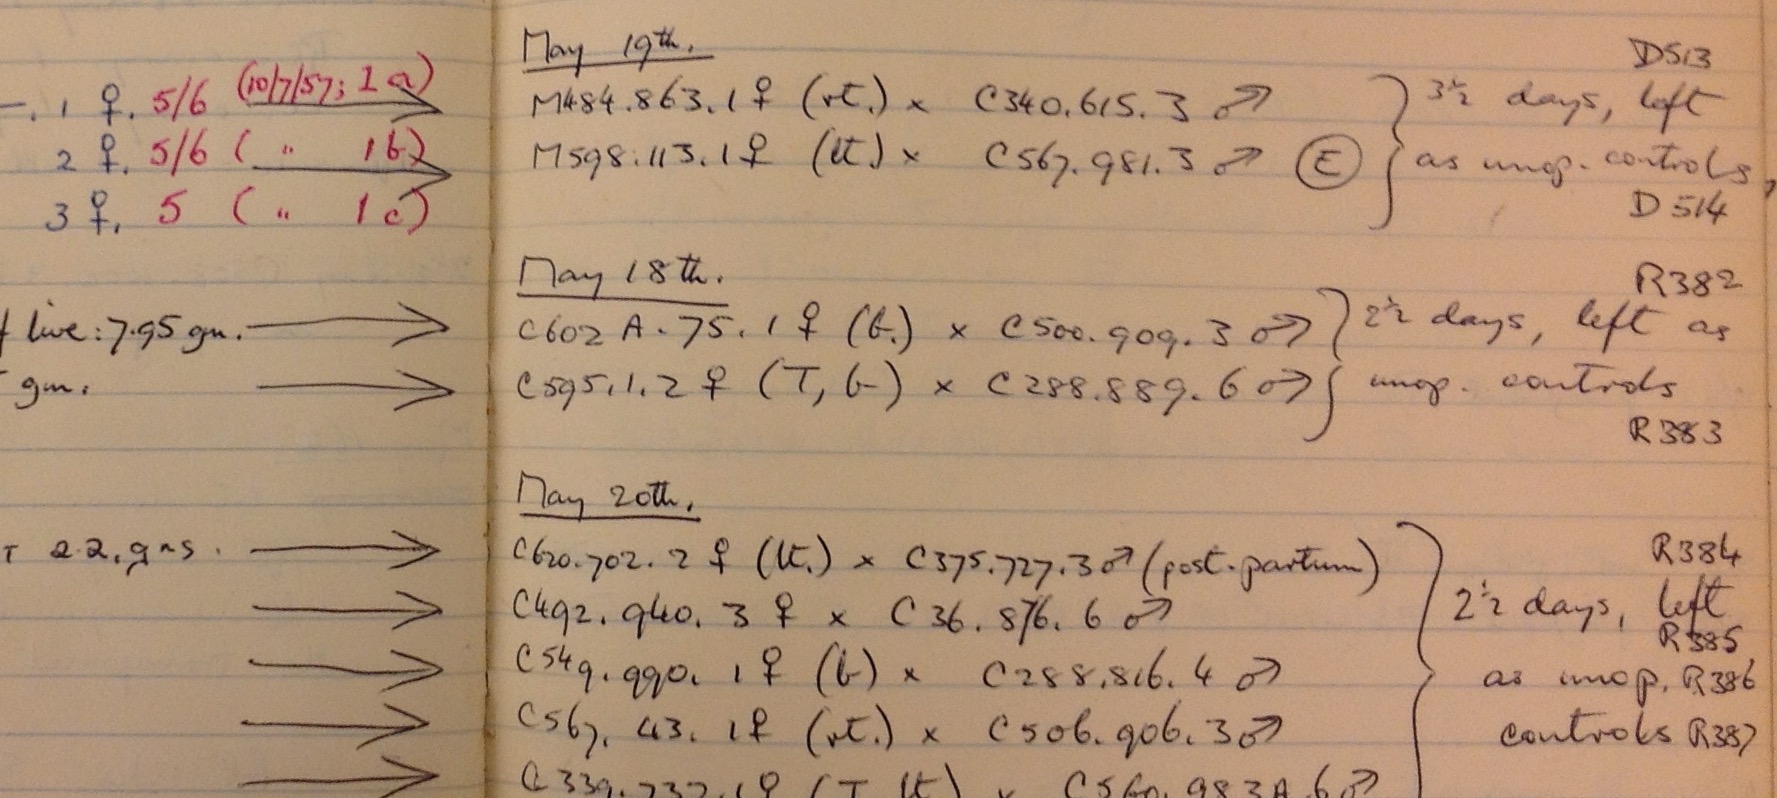 May 19th.
D513
1 ♀. 5/6 (10/7/57; 1a)
M484.863.1♀ (rt.) x C340.615.3 ♂
3½ days, left
2 ♀. 5/6 ( " 1b)
M598.113.1♀ (lt.) x C567.981.3 ♂ (E)
as unop. controls,
3 ♀. 5 ( " 1c)
D514
May 18th.
R382
live: 7.95 gm.
C602A.75.1♀ (b.) x C500.909.3 ♂
2½ days, left as
gm.
C595.1.2♀ (T, b) x C288.889.6 ♂
unop. controls
R383
May 20th.
2.2. gms.
C620.702.2♀ (lt.) x C375.727.3♂ (post-partum)
R384
C492.940.3♀ x C36.876.6 ♂
2½ days, left
R385
C549.990.1♀ (b) x C288.816.4 ♂
as unop. R386
C567.43.1♀ (rt.) x C506.906.3♂
controls R387
C339.737.1♀ (T, lt) x C560.983A.6♂